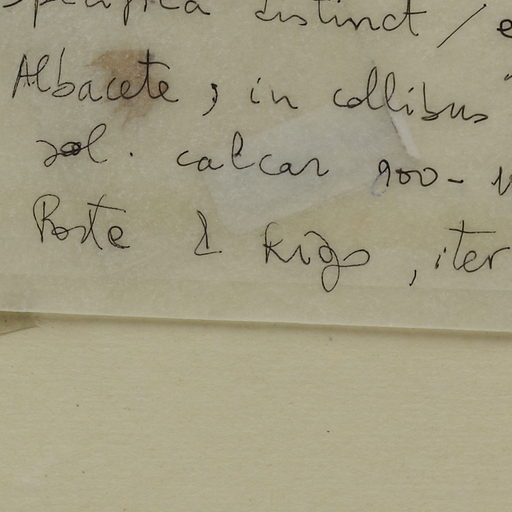 distinct /
Albacete, in collibus
sol. calcar 900-
Porte & Rigo, iter